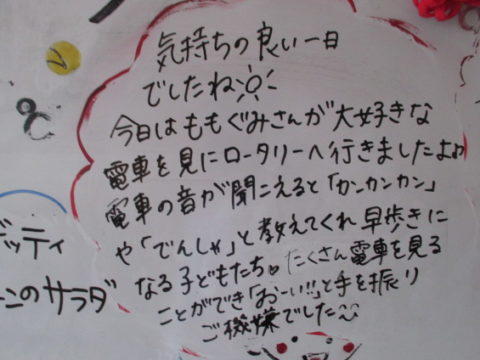 気持ちの良い一日
でしたね
今日はももぐみさんが大好きな
電車を見にロータリーへ行きましたよ
電車の音が聞こえると「カンカンカン」
や「でんしゃ」と教えてくれ早歩きに
なる子どもたち。たくさん電車を見る
ことができ「おーい!!」と手を振り
ご機嫌でした
ッティ
このサラダ